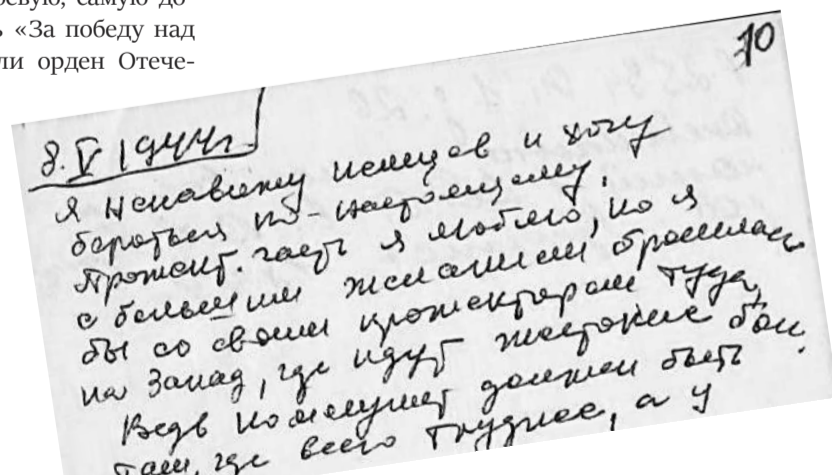 ревую, самую до-
ь «За победу над
ли орден Отече-
10
8.V 1944г.
Я ненавижу немцев и хочу
бороться по-настоящему.
Прожект. часть я люблю, но я
с большим желанием бросилась
бы со своим прожектором туда,
на Запад, где идут жестокие бои.
Ведь коммунист должен быть
там, где всего труднее, а у